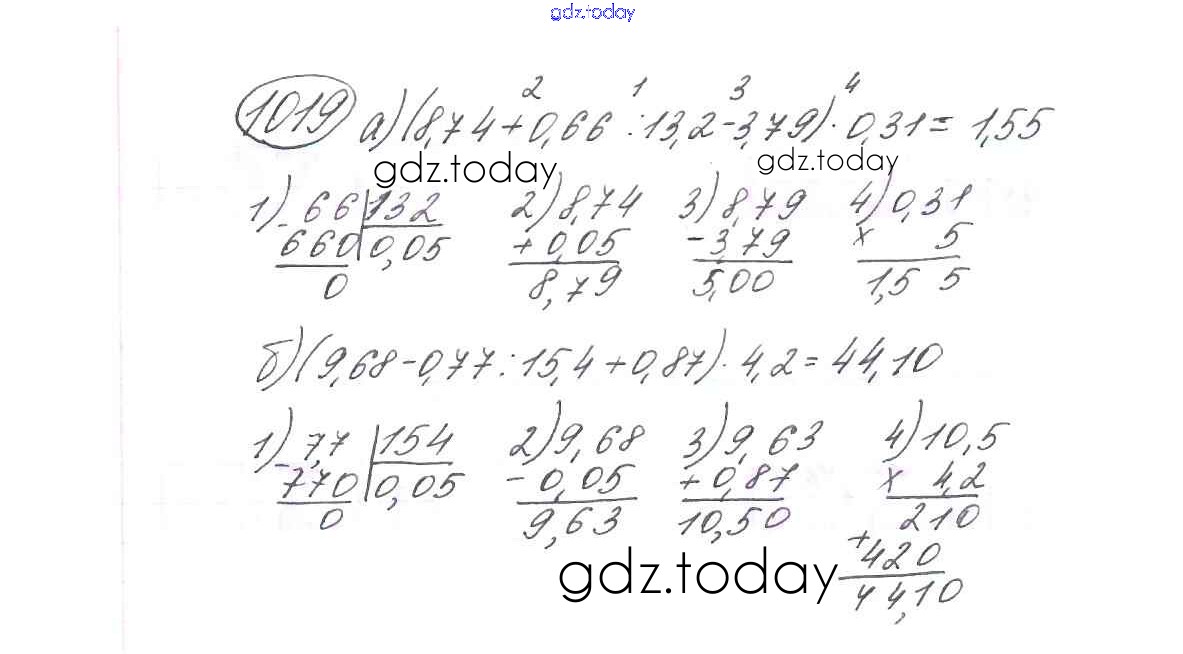 gdz.today
1019 а) (8,74 + 0,66 : 13,2 - 3,79) · 0,31 = 1,55
2 1 3 4
gdz.today gdz.today
1) 66 |132 2) 8,74 3) 8,79 4) 0,31
- 660 |0,05 + 0,05 - 3,79 x 5
0 8,79 5,00 1,5 5
б) (9,68 - 0,77 : 15,4 + 0,87) · 4,2 = 44,10
1) 7,7 |154 2) 9,68 3) 9,63 4) 10,5
- 770 |0,05 - 0,05 + 0,87 x 4,2
0 9,63 10,50 210
gdz.today + 420
44,10